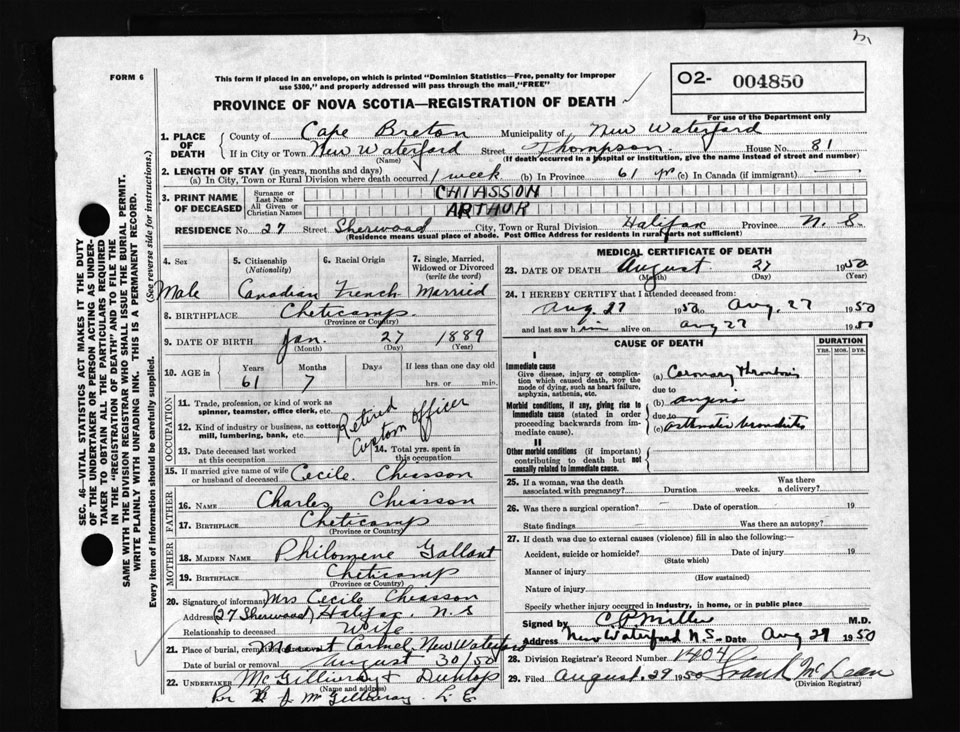 FORM 6
This form if placed in an envelope, on which is printed "Dominion Statistics—Free, penalty for improper
use $300," and properly addressed will pass through the mail "FREE"
O2- 004850
For use of the Department only
PROVINCE OF NOVA SCOTIA—REGISTRATION OF DEATH
1. PLACE OF DEATH
County of Cape Breton Municipality of New Waterford
If in City or Town New Waterford Street Thompson House No. 81
(Name) (If death occurred in a hospital or institution, give the name instead of street and number)
2. LENGTH OF STAY (in years, months and days)
(a) In City, Town or Rural Division where death occurred 1 week (b) In Province 61 yrs (c) In Canada (if immigrant)
3. PRINT NAME OF DECEASED
Surname or Last Name CHIASSON
All Given or Christian Names ARTHUR
RESIDENCE No. 27 Street Sherwood City, Town or Rural Division Halifax Province N. S.
(Residence means usual place of abode. Post Office Address for residents in rural parts not sufficient)
4. Sex
Male
5. Citizenship (Nationality)
Canadian
6. Racial Origin
French
7. Single, Married, Widowed or Divorced (write the word)
Married
8. BIRTHPLACE Cheticamp
(Province or Country)
9. DATE OF BIRTH Jan. 27 1889
(Month) (Day) (Year)
10. AGE in
Years Months Days If less than one day old
61 7 hrs. or min.
OCCUPATION
11. Trade, profession or kind of work as
spinner, teamster, office clerk, etc.
12. Kind of industry or business, as cotton
mill, lumbering, bank, etc.
Retired Custom Officer
13. Date deceased last worked at this occupation
14. Total yrs. spent in this occupation
15. If married give name of wife
or husband of deceased Cecile Chiasson
FATHER
16. NAME Charles Chiasson
17. BIRTHPLACE Cheticamp
(Province or Country)
MOTHER
18. MAIDEN NAME Philomene Gallant
19. BIRTHPLACE Cheticamp
(Province or Country)
20. Signature of informant Mrs Cecile Chiasson
Address (27 Sherwood) Halifax, N. S
Relationship to deceased Wife
21. Place of burial, cremation Mount Carmel, New Waterford
Date of burial or removal August 30/50
22. UNDERTAKER McGillivray & Dunlop
(Name and address)
Per J McGillivray L. E.
MEDICAL CERTIFICATE OF DEATH
23. DATE OF DEATH August 27 1950
(Month) (Day)
24. I HEREBY CERTIFY that I attended deceased from:
Aug. 27 1950 to Aug. 27 1950
and last saw him alive on Aug 27 1950
CAUSE OF DEATH
DURATION
YRS. MOS. DYS.
I
Immediate cause
Give disease, injury or complication which caused death, NOT the mode of dying, such as heart failure, asphyxia, asthenia, etc.
(a) Coronary thrombosis
due to
Morbid conditions, if any, giving rise to immediate cause (stated in order proceeding backwards from immediate cause).
(b) angina
due to
(c) asthmatic bronchitis
II
Other morbid conditions (if important) contributing to death but not causally related to immediate cause.
25. If a woman, was the death Was there
associated with pregnancy? Duration weeks. a delivery?
26. Was there a surgical operation? Date of operation. 19
State findings Was there an autopsy?
27. If death was due to external causes (violence) fill in also the following:—
Accident, suicide or homicide? Date of injury 19
(State which)
Manner of injury
(How sustained)
Nature of injury
Specify whether injury occurred in industry, in home, or in public place
Signed by C. P. Miller M.D.
Address New Waterford N.S. Date Aug 29 1950
28. Division Registrar's Record Number 1404
29. Filed August. 29 1950 Frank McLean
(Division Registrar)
SEC. 46—VITAL STATISTICS ACT MAKES IT THE DUTY
OF THE UNDERTAKER OR PERSON ACTING AS UNDERTAKER
TO OBTAIN ALL THE PARTICULARS REQUIRED
IN THE "REGISTRATION OF DEATH" AND TO FILE THE
SAME WITH THE DIVISION REGISTRAR WHO SHALL ISSUE THE BURIAL PERMIT.
WRITE PLAINLY WITH UNFADING INK. THIS IS A PERMANENT RECORD.
Every item of information should be carefully supplied. (See reverse side for instructions.)